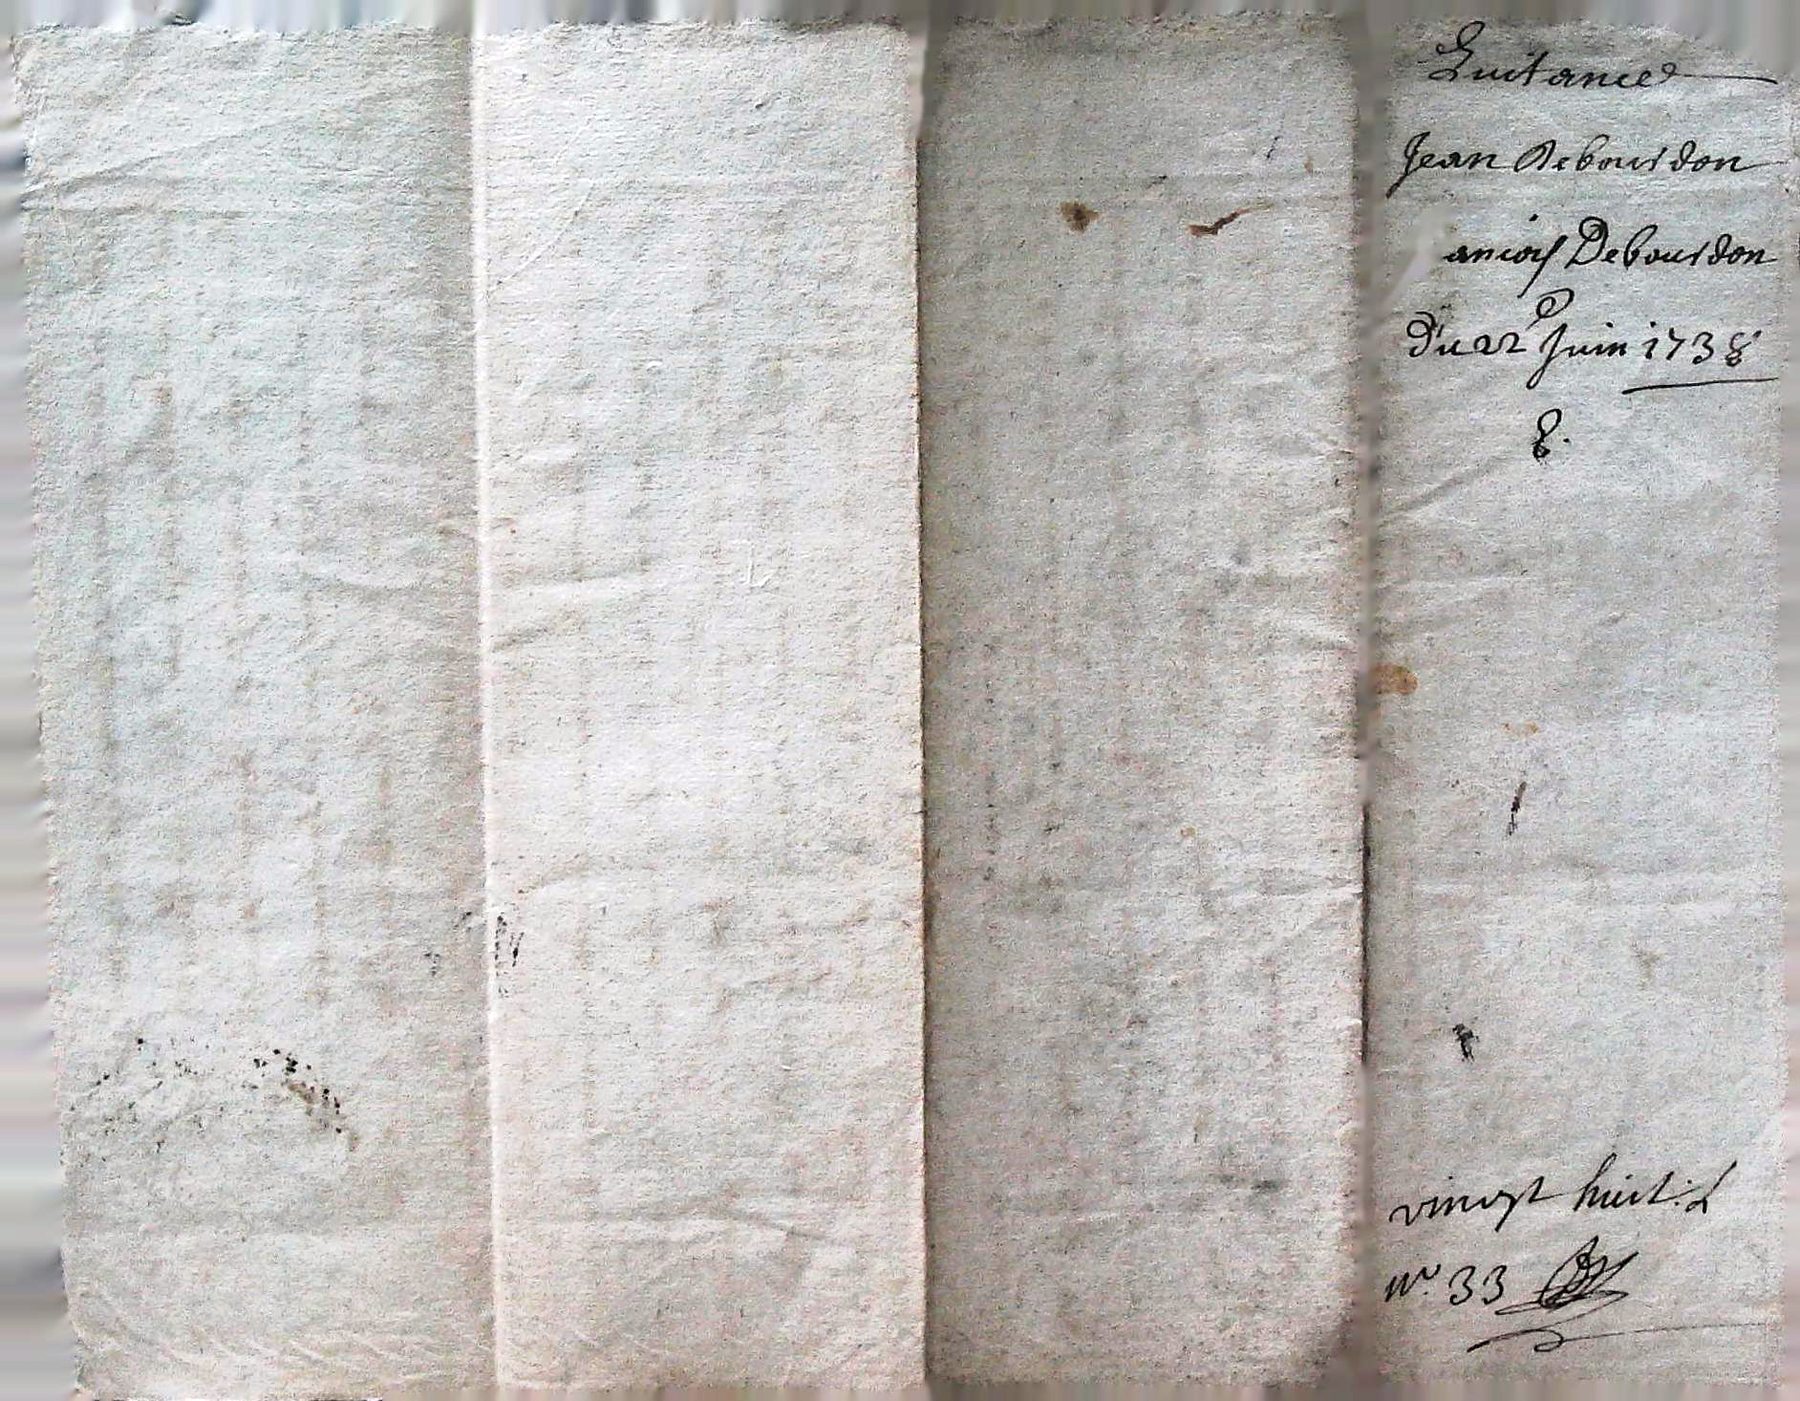 Quitance
Jean Debourdon
ancois Debourdon
Du 22e Juin 1738
8.
vingt huict:
No. 33